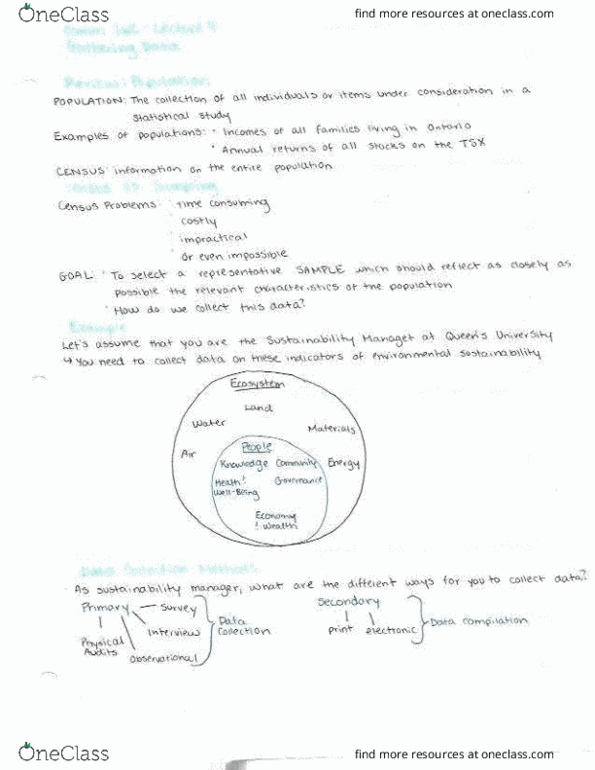 OneClass
find more resources at oneclass.com
Comm 162 Lecture 4
Gathering Data
Review: Population
POPULATION: The collection of all individuals or items under consideration in a
statistical study
Examples of populations: • Incomes of all families living in Ontario
• Annual returns of all stocks on the TSX
CENSUS: information on the entire population
Census vs. Sampling
Census Problems: • Time consuming
• costly
• impractical
• Or even impossible
GOAL: • To select a representative SAMPLE which should reflect as closely as
possible the relevant characteristics of the population
• How do we collect this data?
Example
Let's assume that you are the Sustainability Manager at Queen's University
↳ You need to collect data on these indicators of environmental sustainability
Ecosystem
Land
Water
Materials
Air
People
Knowledge Community
Energy
Health!
Well-Being
Governance
Economy
! Wealth
Data Collection Methods
• As sustainability manager, what are the different ways for you to collect data?
Primary
Survey
Interviews
Physical
Audits
Observational
Data
Collection
Secondary
print electronic
Data compilation
OneClass
find more resources at oneclass.com